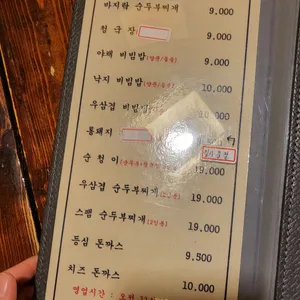 바지락 순두부찌개 9,000
청국장 9,000
야채 비빔밥 9,000
낙지 비빔밥 10,000
우삼겹 비빔밥 10,000
통돼지
순청이 19,000
우삼겹 순두부찌개(2인분) 19,000
스팸 순두부찌개(2인분) 19,000
등심 돈까스 9,500
치즈 돈까스 10,000
영업시간 : 오전